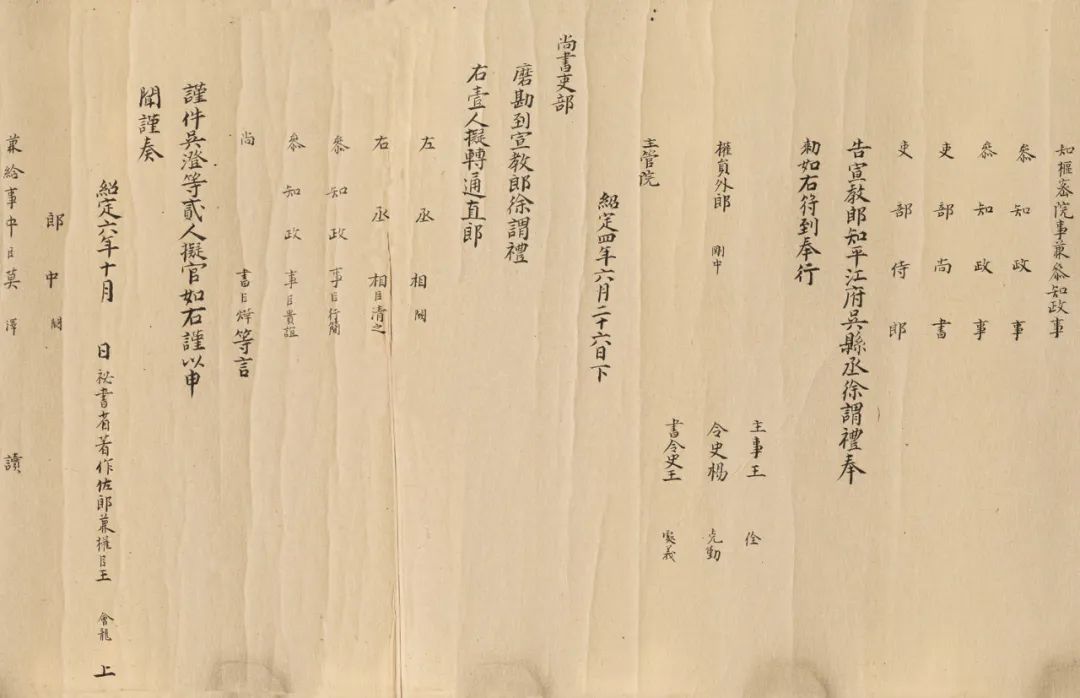 知樞密院事兼參知政事
參知政事
參知政事
吏部尚書
吏部侍郎
告宣教郎知平江府吳縣丞徐謂禮奉
勑如右符到奉行
主事王 佺
權員外郎 剛中 令史楊 克勤
書令史王
主管院
紹定四年六月二十六日下
尚書吏部
磨勘到宣教郎徐謂禮
右壹人擬轉通直郎
左丞相 闕
右丞相臣清之
參知政事臣行簡
參知政事臣貴誼
尚書臣燁等言
謹件吳澄等貳人擬官如右謹以申
聞謹奏
紹定六年十月 日 祕書省著作佐郎兼權臣王 會龍 上
郎中 闕
兼給事中臣莫 澤 讀